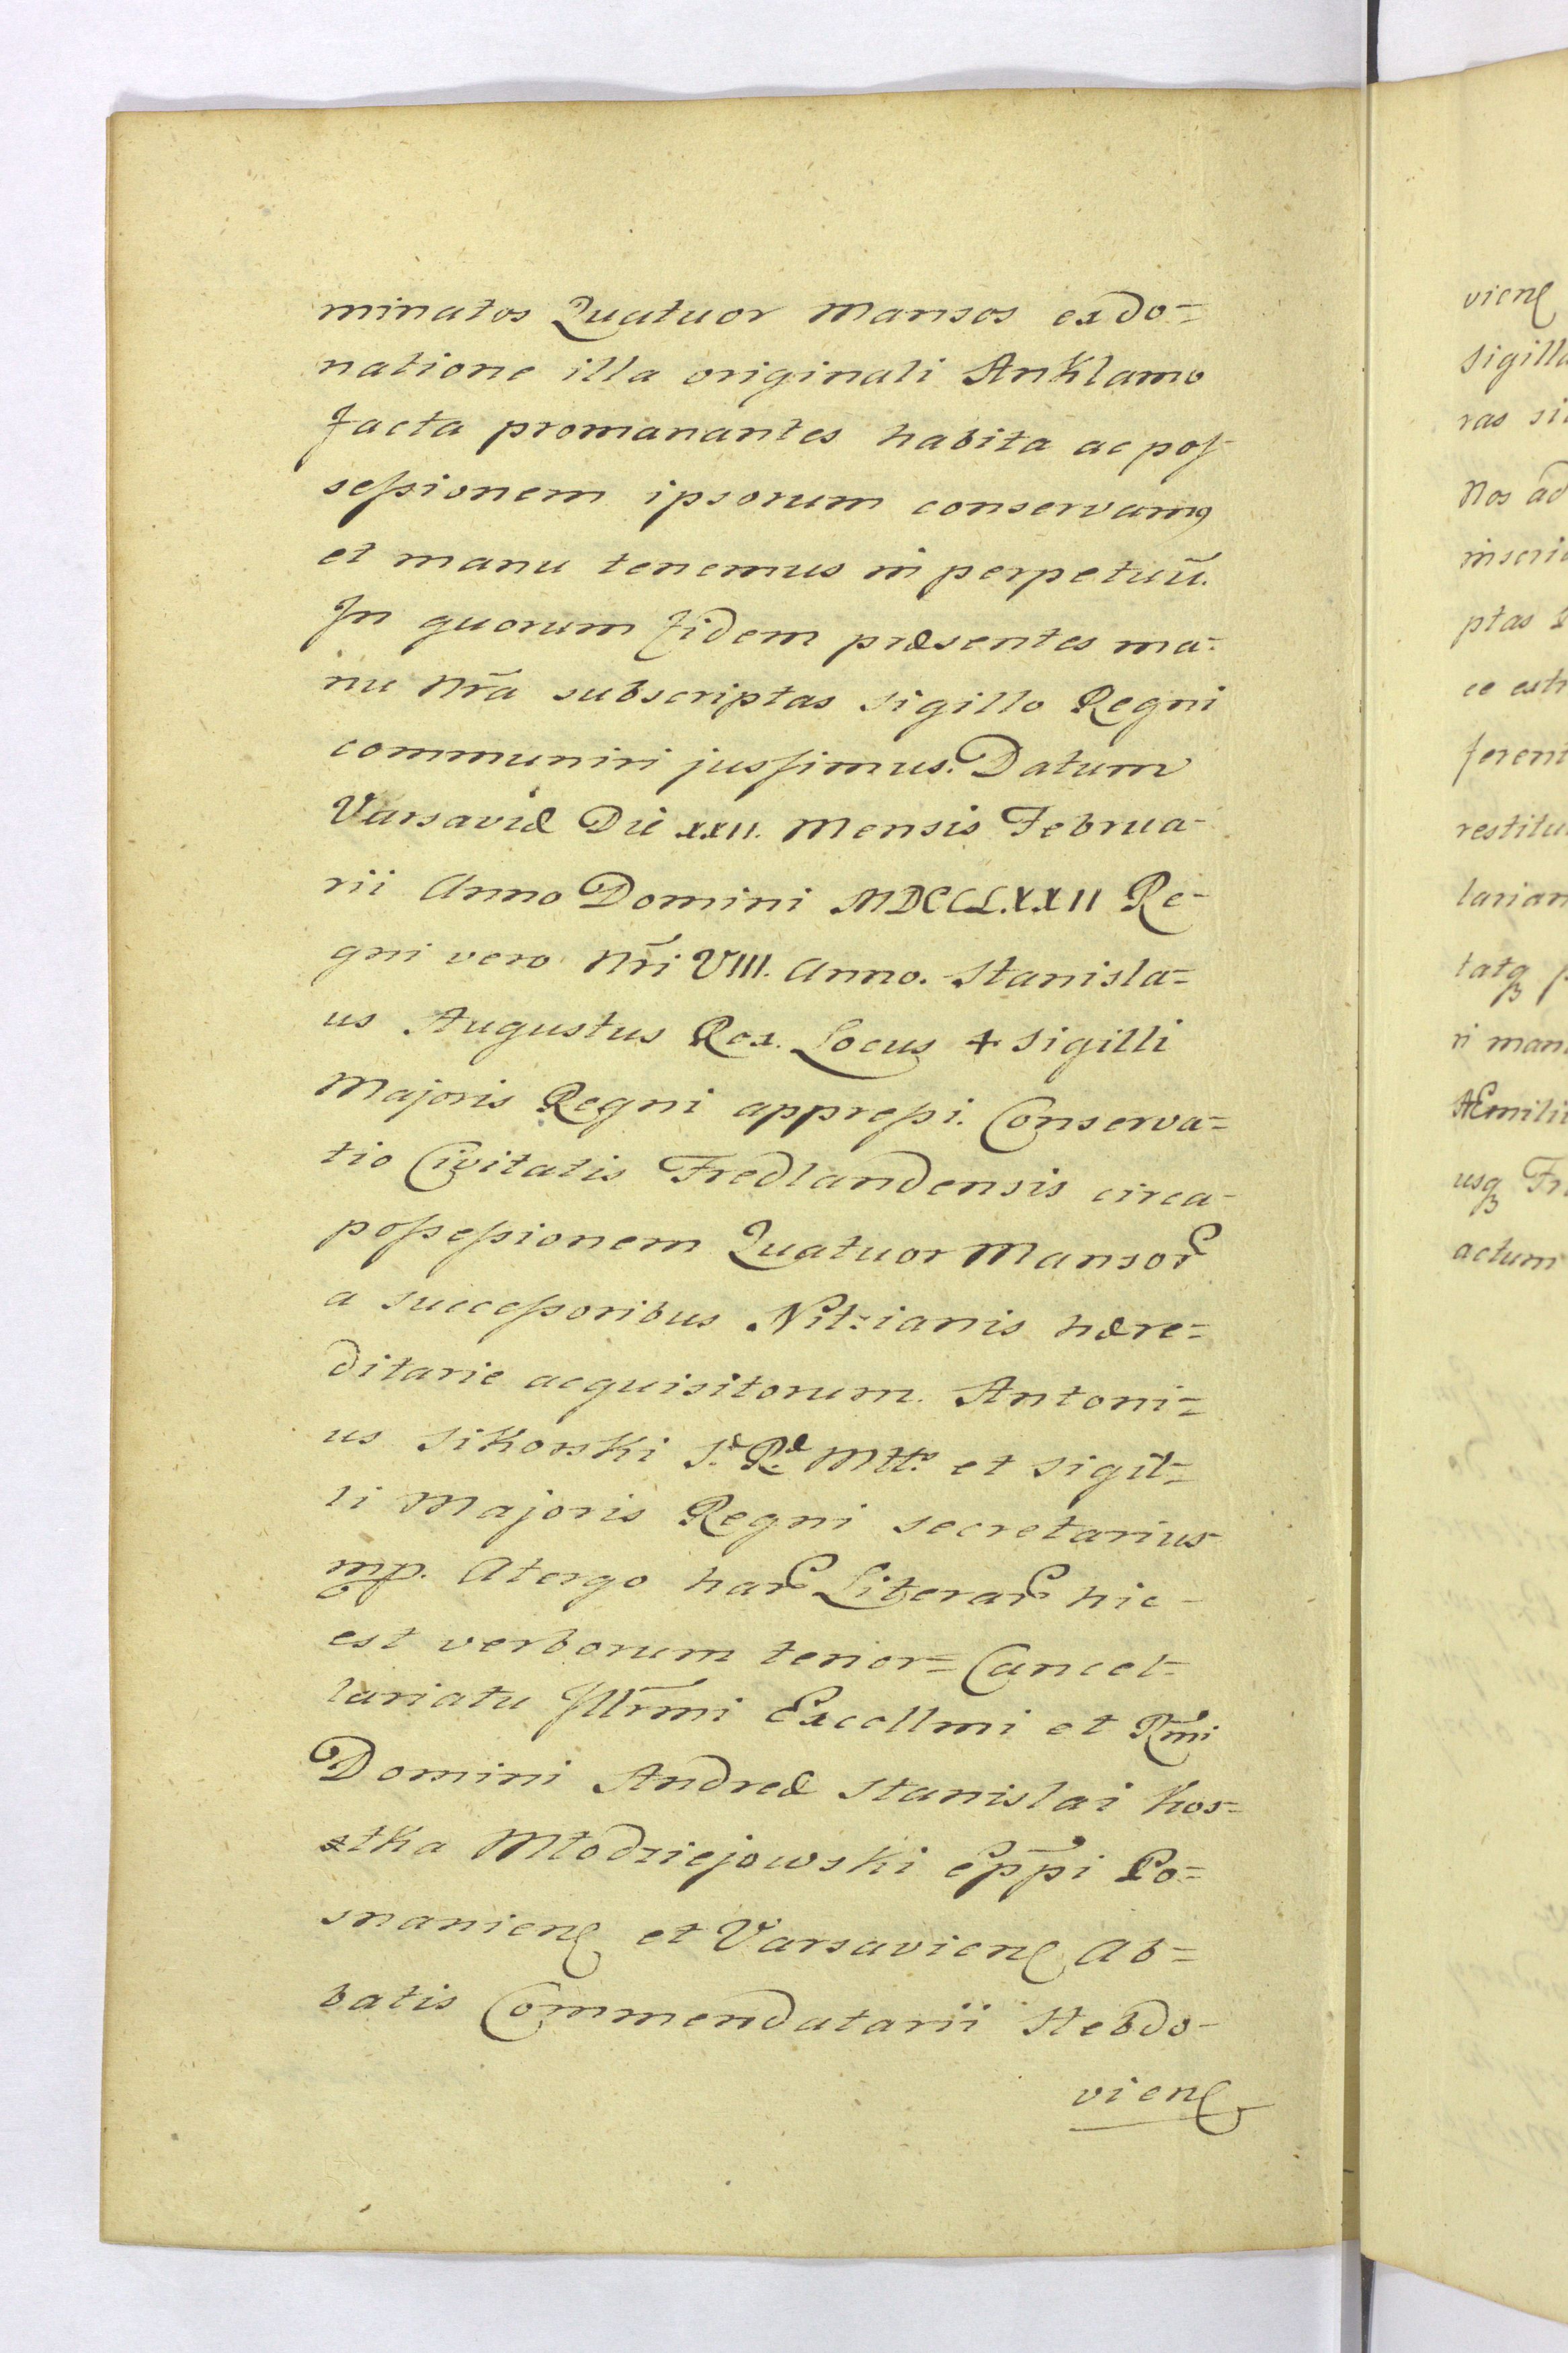 minatos Quatuor Mansos ex do=
natione illa originali Anklamo
facta promanantes habita ac pos-
sessionem ipsorum conservamꝰ
et manu tenemus in perpetuū.
In quorum fidem præsentes ma-
nu Nrã subscriptas Sigillo Regni
communiri jussimus. Datum
Varsaviæ Die XXII. Mensis Februa-
rii Anno Domini MDCCLXXII Re-
gni vero Nri VIII. Anno. Stanisla=
us Augustus Rex. Locus + Sigilli
Majoris Regni appressi. Conserva=
tio Civitatis Fredlandensis circa-
possessionem Quatuor Mansoꝝ
a successoribus Nitzianis hære=
ditarie acquisitorum. Antoni=
us Sikorski S. R. Mtt. et Sigil=
li Majoris Regni secretarius
mp. A tergo haꝝ Literaꝝ hic-
est verborum tenor= Cancel-
lariatu Illrmi Excellmi et Rmi
Domini Andreæ Stanislai Kos=
stka Młodziejowski Eppi Po=
snanien. et Varsavien. Ab=
batis Commendatarii Hebdo-
vien.
vien.
Sigill
ras si
Nos ad
inscri
ptas
ce est
ferent
restitu
larian
tatqꝫ p
ri man
Æmili
usqꝫ Fr
actum